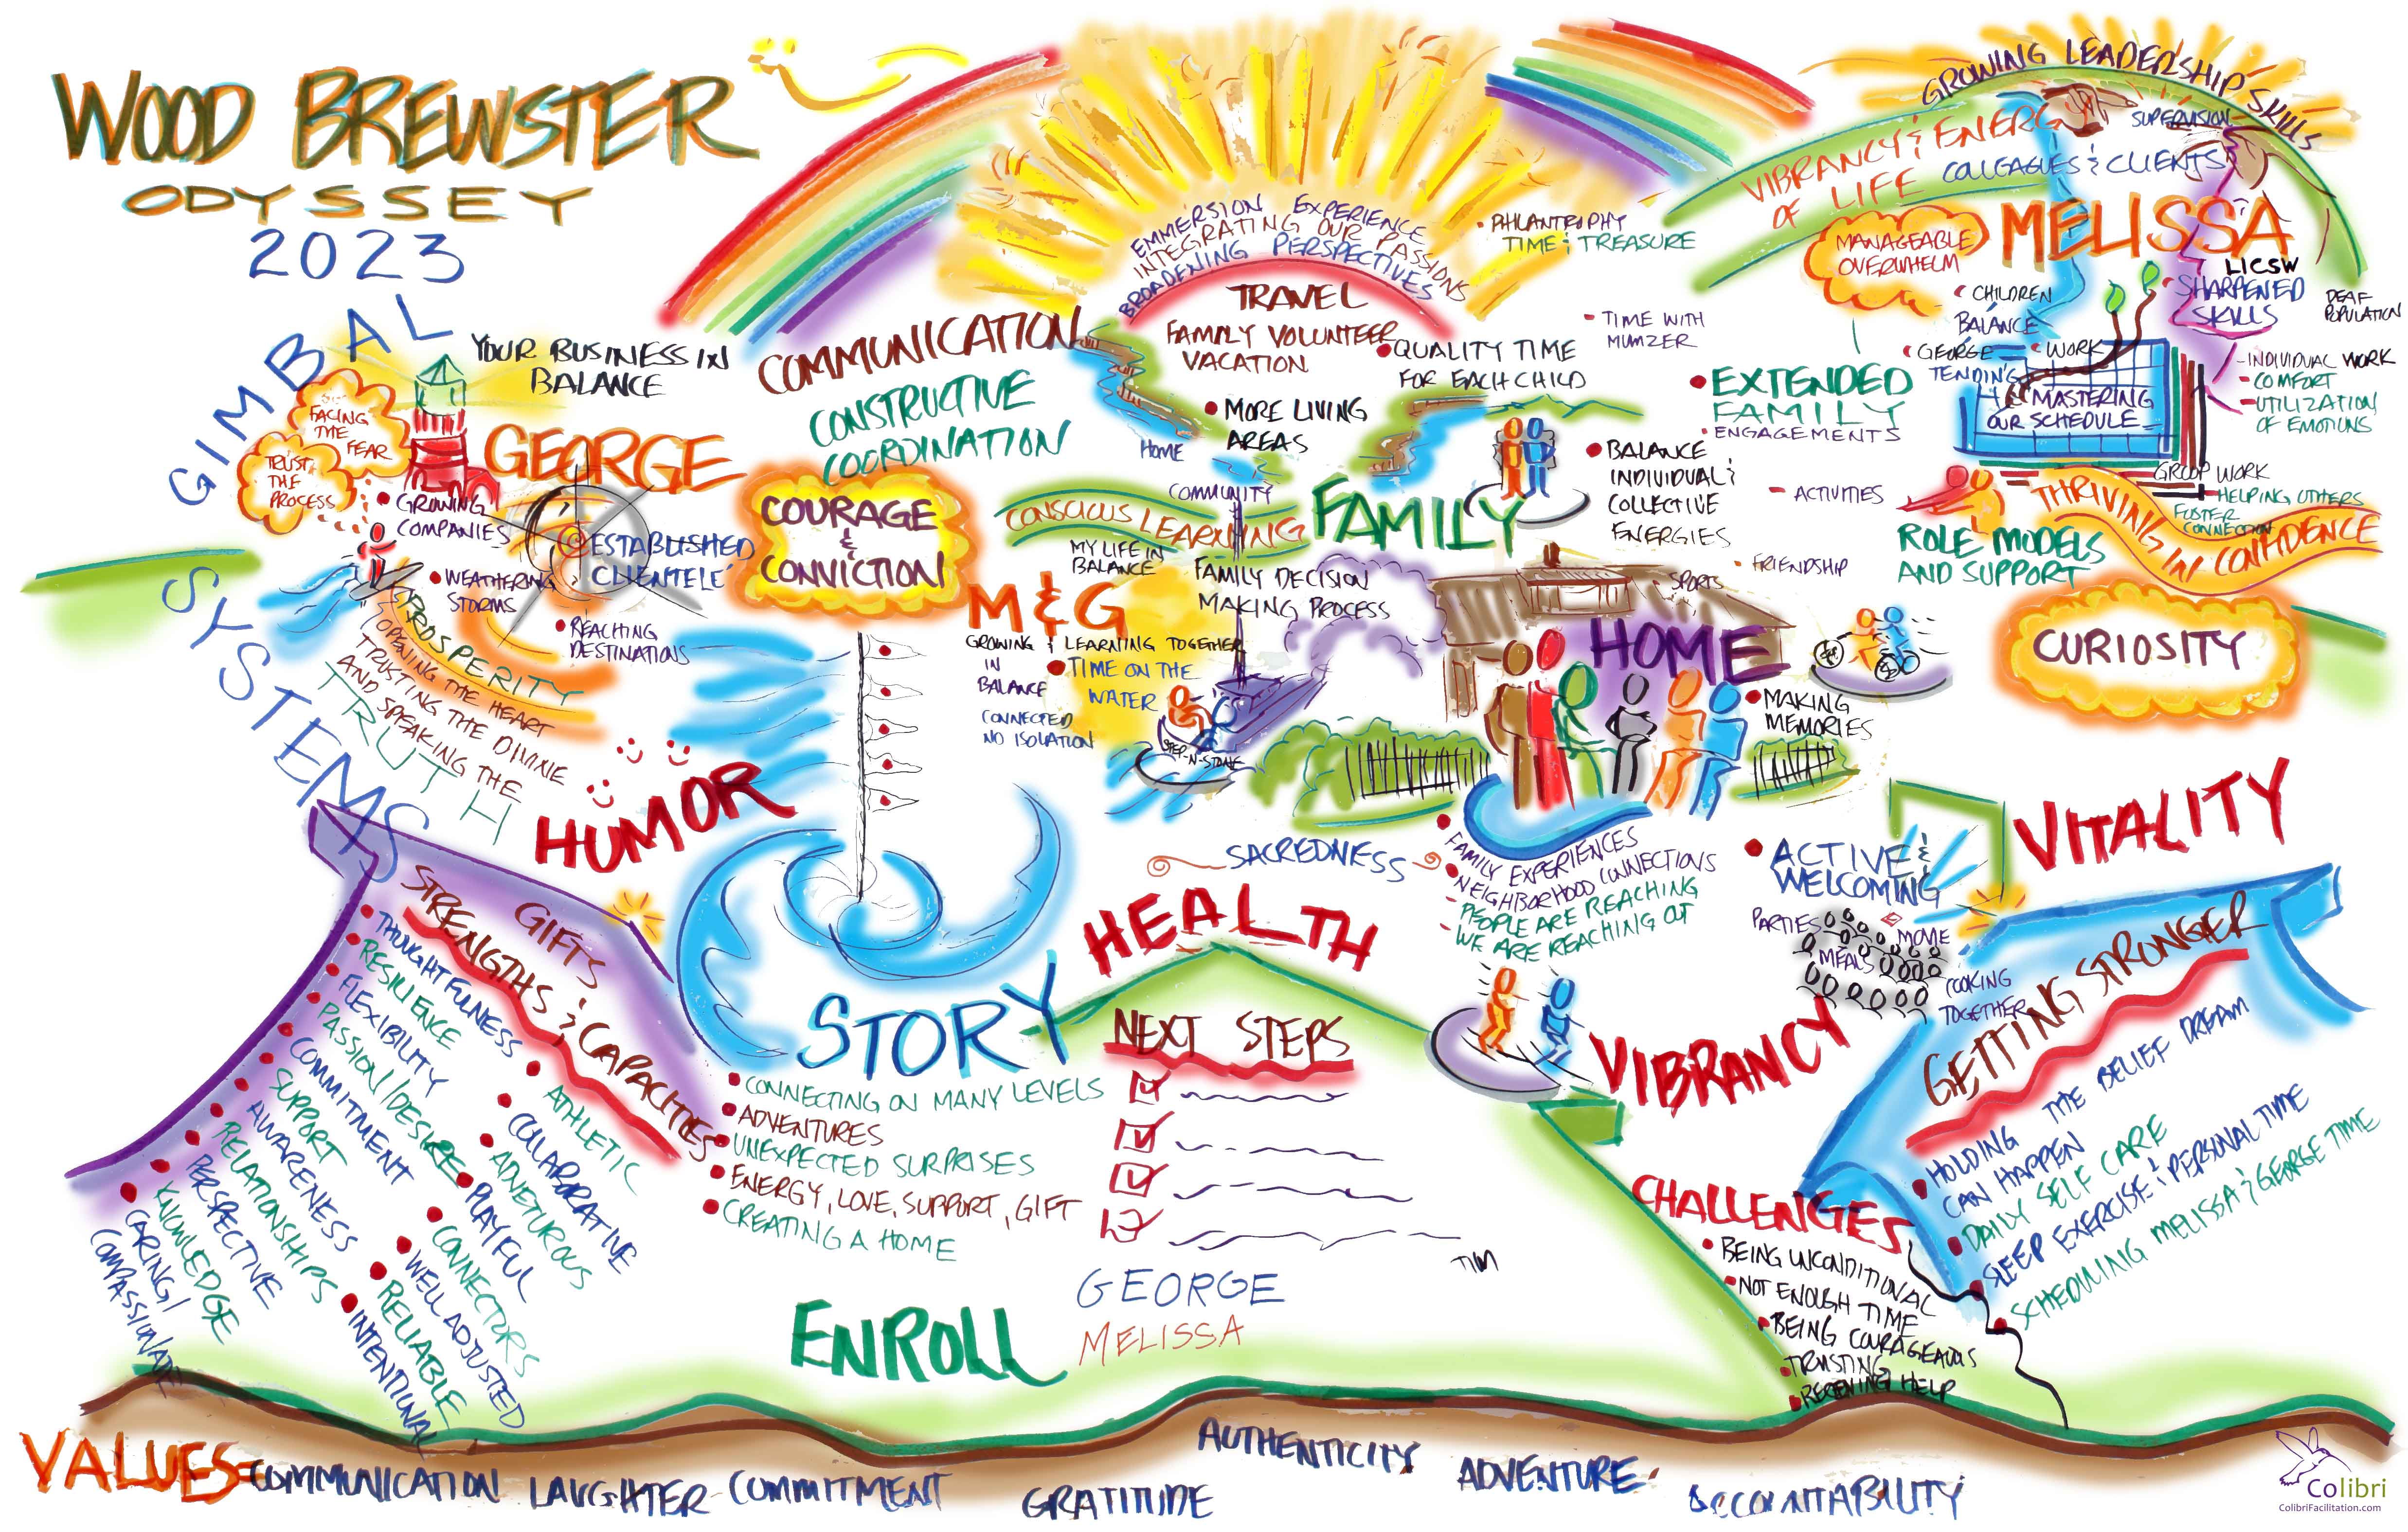 WOOD BREWSTER
ODYSSEY
2023
GIMBAL
SYSTEMS
YOUR BUSINESS IN
BALANCE
FACING
THE
FEAR
TRUST
THE
PROCESS
GEORGE
GROWING
COMPANIES
ESTABLISHED
CLIENTELE
WEATHERING
STORMS
REACHING
DESTINATIONS
PROSPERITY
OPENING THE HEART
TRUSTING THE DIVINE
AND SPEAKING THE
TRUTH
HUMOR
COMMUNICATION
CONSTRUCTIVE
COORDINATION
COURAGE
&
CONVICTION
EMMERSION EXPERIENCE
INTEGRATING OUR PASSIONS
BROADENING PERSPECTIVES
TRAVEL
FAMILY VOLUNTEER
VACATION
PHILANTROPHY
TIME & TREASURE
TIME WITH
MUMZER
QUALITY TIME
FOR EACH CHILD
MORE LIVING
AREAS
HOME
COMMUNITY
CONSCIOUS LEARNING
FAMILY
MY LIFE IN
BALANCE
FAMILY DECISION
MAKING PROCESS
M & G
GROWING & LEARNING TOGETHER
IN
BALANCE
TIME ON THE
WATER
CONNECTED
NO ISOLATION
STEP-N-STONE
BALANCE
INDIVIDUAL &
COLLECTIVE
ENERGIES
EXTENDED
FAMILY
ENGAGEMENTS
ACTIVITIES
SPORTS
FRIENDSHIP
HOME
MAKING
MEMORIES
GROWING LEADERSHIP SKILLS
SUPERVISION
VIBRANCY & ENERGY
OF LIFE
COLLEAGUES & CLIENTS
MELISSA
LICSW
MANAGEABLE
OVERWHELM
SHARPENED
SKILLS
DEAF
POPULATION
CHILDREN
BALANCE
GEORGE
TENDING
WORK
MASTERING
OUR SCHEDULE
INDIVIDUAL WORK
COMFORT
UTILIZATION
OF EMOTIONS
GROUP WORK
HELPING OTHERS
FOSTER
CONNECTION
THRIVING IN CONFIDENCE
ROLE MODELS
AND SUPPORT
CURIOSITY
VITALITY
SACREDNESS
FAMILY EXPERIENCES
NEIGHBORHOOD CONNECTIONS
PEOPLE ARE REACHING
WE ARE REACHING OUT
ACTIVE &
WELCOMING
PARTIES
MOVIE
MEALS
COOKING
TOGETHER
VIBRANCY
HEALTH
GIFTS
STRENGTHS & CAPACITIES
THOUGHTFULNESS
RESILIENCE
FLEXIBILITY
PASSION/DESIRE
COMMITMENT
SUPPORT
AWARENESS
RELATIONSHIPS
PERSPECTIVE
KNOWLEDGE
CARING/
COMPASSIONATE
ATHLETIC
COLLABORATIVE
ADVETUROUS
PLAYFUL
CONNECTORS
WELL ADJUSTED
RELIABLE
INTENTIONAL
STORY
CONNECTING ON MANY LEVELS
ADVENTURES
UNEXPECTED SURPRISES
ENERGY, LOVE, SUPPORT, GIFT
CREATING A HOME
NEXT STEPS
TIM
ENROLL
GEORGE
MELISSA
GETTING STRONGER
HOLDING THE BELIEF DREAM
CAN HAPPEN
DAILY SELF CARE
SLEEP EXERCISE & PERSONAL TIME
SCHEDULING MELISSA & GEORGE TIME
CHALLENGES
BEING UNCONDITIONAL
NOT ENOUGH TIME
BEING COURAGEOUS
TRUSTING
RECEIVING HELP
VALUES - COMMUNICATION LAUGHTER - COMMITMENT
GRATITUDE
AUTHENTICITY
ADVENTURE
ACCOUNTABILITY
Colibri
ColibriFacilitation.com